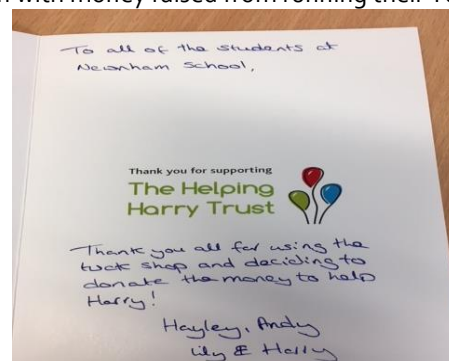 To all of the students at
Newnham School,
Thank you for supporting
The Helping
Harry Trust
Thank you all for using the
tuck shop and deciding to
donate the money to help
Harry!
Hayley, Andy
Lily & Harry